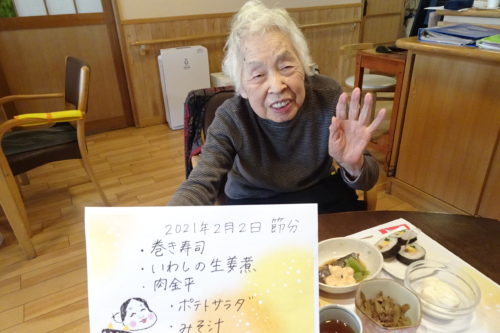 2021年2月2日 節分
・巻き寿司
・いわしの生姜煮
・肉金平
・ポテトサラダ
・みそ汁